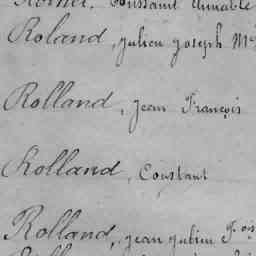 Toussaint Aimable
Roland, Julien Joseph M
Rolland, Jean François
Rolland, Constant
Rolland, Jean Julien F.ois